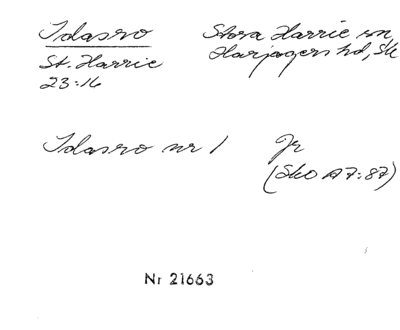 Idasro Stora Harrie sn,
St. Harrie Harjagers hd, Sk
23:16
Idasro nr 1 Jr
(Sko A7:87)
Nr 21663